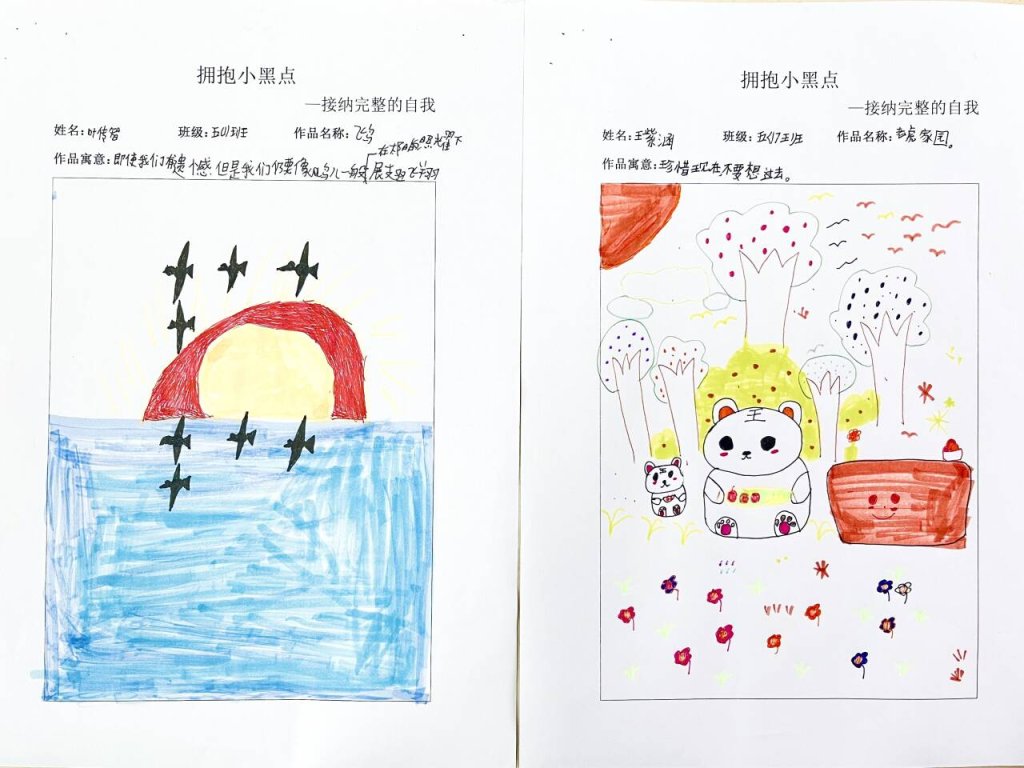 拥抱小黑点
—接纳完整的自我
姓名:叶传智 班级:五(1)班 作品名称:飞鸟
作品寓意:即使我们有遗憾.但是我们仍要像鸟儿一样在太阳的照耀下展支翅飞翔
拥抱小黑点
—接纳完整的自我
姓名:王紫涵 班级:五(7)班 作品名称:老虎家园。
作品寓意:珍惜现在不要想过去。
王
王